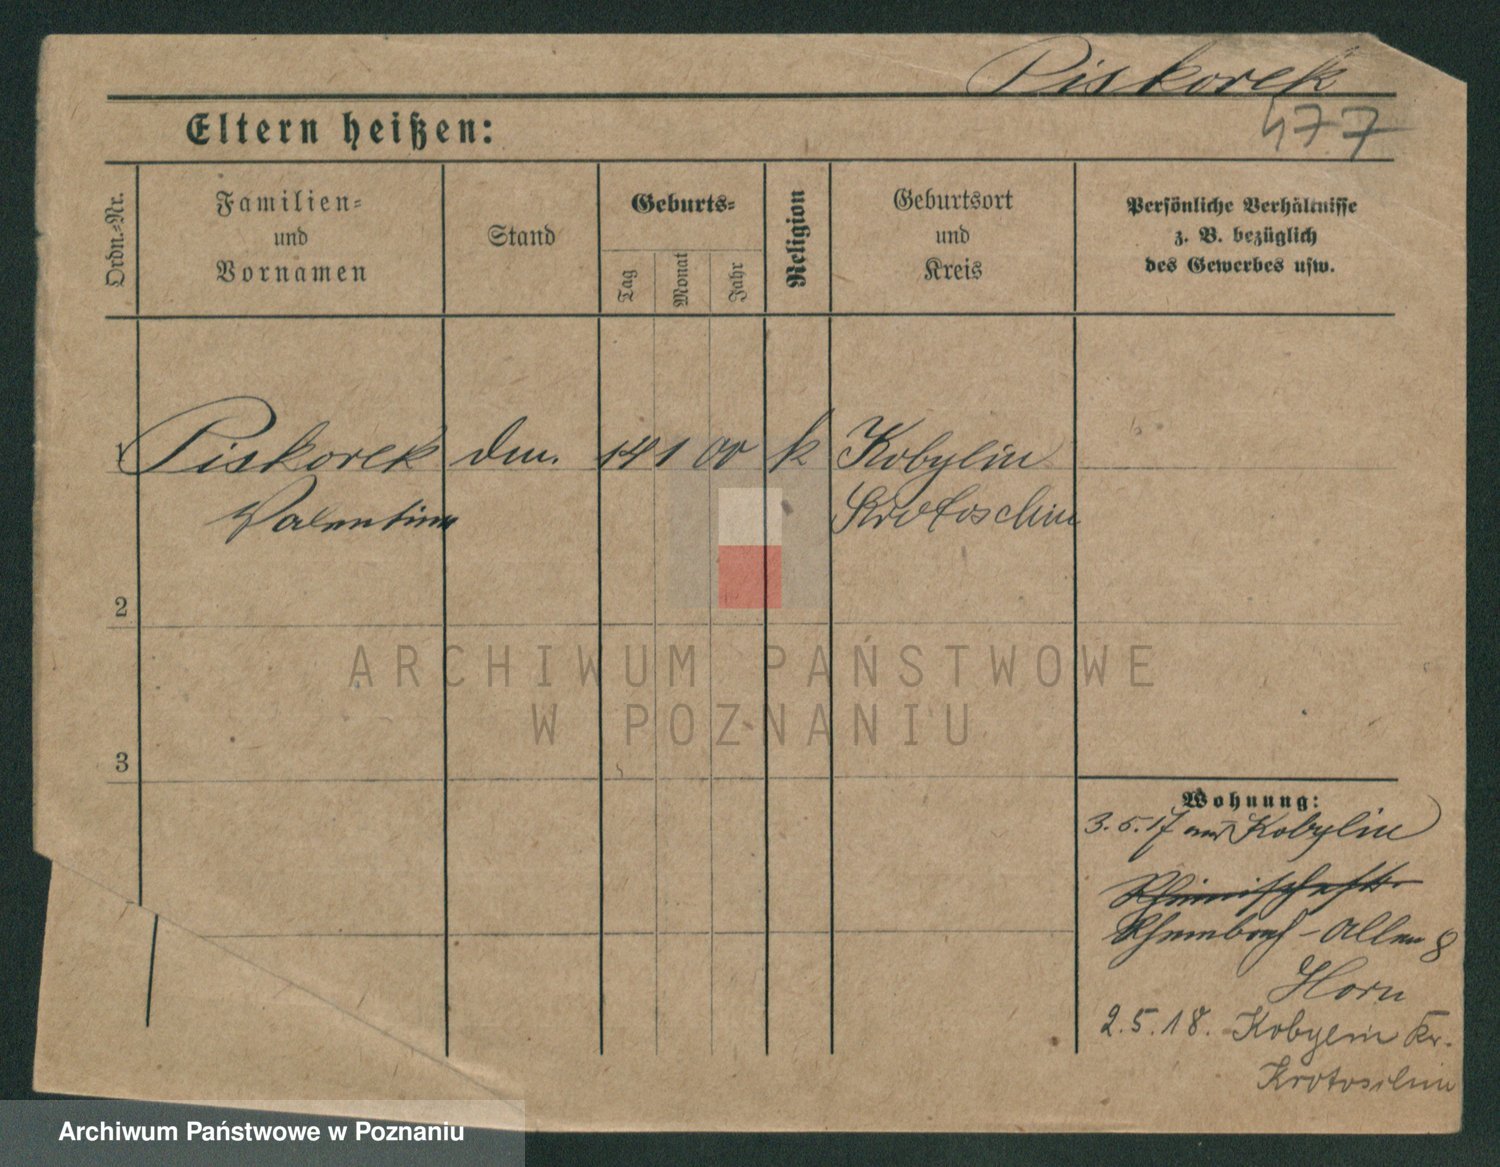 Piskorek
477
Eltern heißen:
Ordn.-Nr.
Familien-
und
Vornamen
Stand
Geburts-
Tag
Monat
Jahr
Religion
Geburtsort
und
Kreis
Persönliche Verhältnisse
z. B. bezüglich
des Gewerbes usw.
1 Piskorek 14 1 00 k Kobylin
Valentine Krotoschin
2
3
Wohnung:
3.5.17 aus Kobylin
8
Horn
2.5.18. Kobylin Kr.
Krotoschin
ARCHIWUM PAŃSTWOWE
W POZNANIU
Archiwum Państwowe w Poznaniu